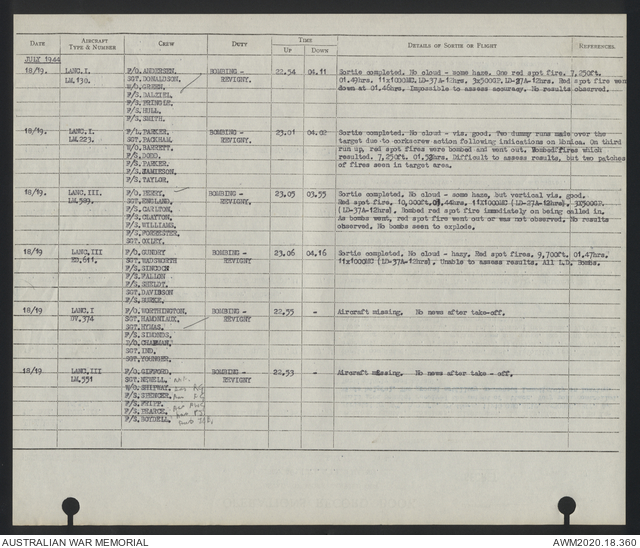 DATE AIRCRAFT TYPE & NUMBER CREW DUTY TIME UP DOWN DETAILS OF SORTIE OR FLIGHT REFERENCES.
JULY 1944
18/19. LANC.I. F/O. ANDERSEN. BOMBING - 22.54 04.11 Sortie completed. No cloud - some haze. One red spot fire. 7,250ft.
LM,130. SGT. DONALDSON. REVIGNY 01.49hrs. 11x1000MC. LD-37A-12hrs. 3x500GP. LD-27A-12hrs. Red spot fire went
W/O. GREEN. down at 01.46hrs. Impossible to assess accuracy. No results observed.
F/S. DALZIEL.
F/S. PRINGLE.
F/S. HULL.
F/S. SMITH.
18/19. LANC.I. F/L. PARKER. BOMBING - 23.01 04.02 Sortie completed. No cloud - vis. good. Two dummy runs made over the
LM.223. SGT. PACKHAM. REVIGNY target due to corkscrew action following indications on Monica. On third
W/O. BARRETT. run up, red spot fires were bombed and went out. Bombed fires which
F/S. DODD. resulted. 7,250ft. Difficult to assess results, but two patches
F/S. PARKER. of fires seen in target area.
F/S. JAMIESON.
F/S. TAYLOR.
18/19. LANC.III. F/O. BERRY. BOMBING - 23.05 03.55 Sortie completed. No cloud - some haze, but vertical vis. good.
LM.589. SGT. ENGLAND. REVIGNY Red spot fire. 10,000ft. 11x1000MC (LD-27A-12hrs). 3x500GP.
F/S. CARLTON. (LD-37A-12hrs). Bombed red spot fire immediately on being called in.
F/S. CLAYTON. As bombs went, red spot fire went out or was not observed. No results
F/S. WILLIAMS. observed. No bombs seen to explode.
F/S. FORRESTER.
SGT. OXLEY.
18/19 LANC.III F/O. GUNDRY BOMBING - 23.06 04.16 Sortie completed. No cloud - hazy. Red spot fires. 9,700ft. 01.47hrs.
ED.611. SGT. WADSWORTH REVIGNY 11x1000MC (LD-37A-12hrs). Unable to assess results. All L.D. Bombs.
F/S. SINDEN
F/S. FALLON
F/S.
SGT. DAVIDSON
F/S. BURKE.
18/19 LANC.I F/O. WORTHINGTON. BOMBING - 22.55 - Aircraft missing. No news after take-off.
PV.374 SGT. REVIGNY
SGT. HYMAS.
F/S. SIMONDS.
P/O. CHAPMAN.
SGT. IND.
SGT. YOUNGER.
18/19 LANC.III F/O. GIFFORD. BOMBING - 22.53 - Aircraft missing. No news after take - off.
LM.551 SGT. NEWELL. REVIGNY
W/O. SHIPWAY.
F/S. SPENCER.
F/S. FRIPP.
F/S. PEARCE.
F/S. BOYDELL.
AUSTRALIAN WAR MEMORIAL AWM2020.18.360